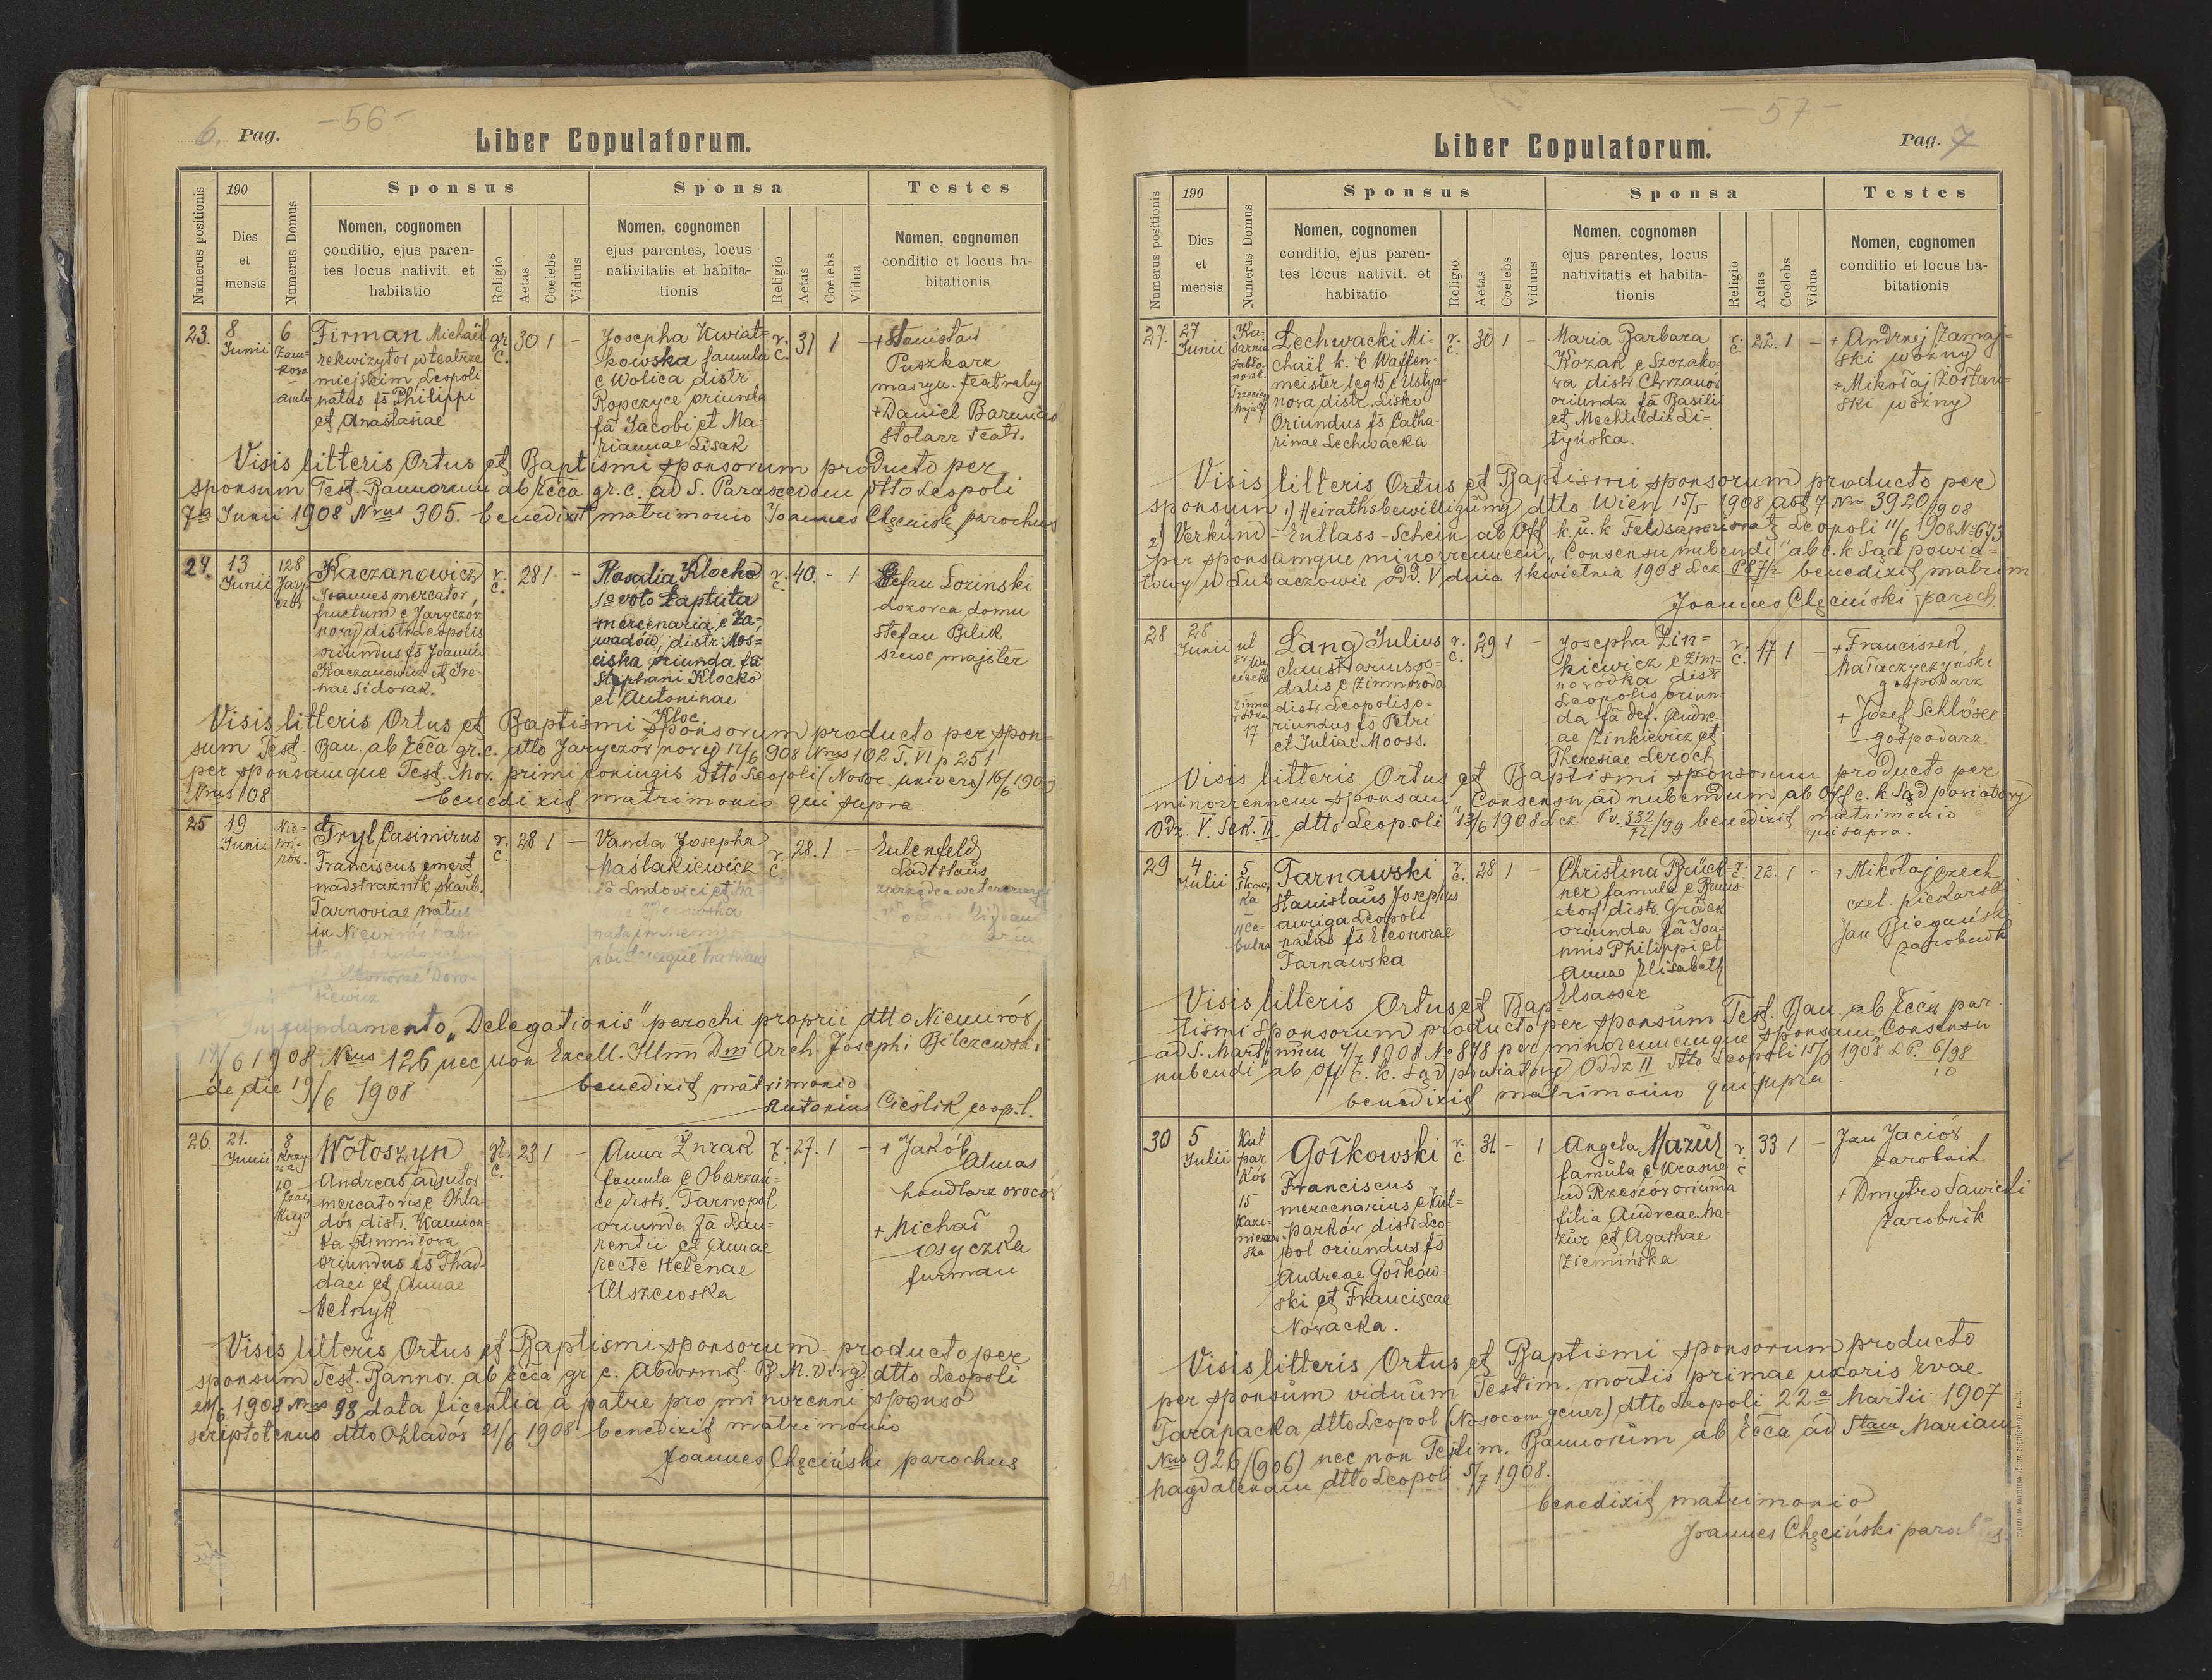 6. Pag.
-56-
Liber Copulatorum.
Numerus positionis
190
Dies
et
mensis
Numerus Domus
Sponsus
Nomen, cognomen
conditio, ejus paren-
tes locus nativit. et
habitatio
Religio
Aetas
Coelebs
Viduus
Sponsa
Nomen, cognomen
ejus parentes, locus
nativitatis et habita-
tionis
Religio
Aetas
Coelebs
Vidua
Testes
Nomen, cognomen
conditio et locus ha-
bitationis
23.
8
Junii
6
Zam-
kowa
Firman Michaël
rekwizytor w teatrze
miejskim, Leopoli
natus fs Philippi
et Anastasiae
gr.
c.
30
1
-
Josepha Kwiat-
kowska famula
e Wolica distr
Ropczyce oriunda
fa Jacobi et Ma-
riannae Lisak
r.
c.
31
1
-
+ Stanisław
Puszkarz
maszyn. teatralny
+ Daniel
Stolarz teatr.
Visis litteris Ortus et Baptismi sponsorum producto per
sponsum Test. Bannorum ab Ecca gr. c. ad S. Parascevam dtto Leopoli
7a Junii 1908 Nrus 305. benedixit matrimonio Joannes Chęciński parochus
24.
13
Junii
128
Jary
czów
Kaczanowicz
Joannes mercator
fructum e Jaryczów
nowy distr Leopolis
oriundus fs Joannis
Kaczanowicz et Ire-
nae Sidorak.
r.
c.
28
1
-
Rosalia Klocko
1o voto Łaptuta
mercenaria e Za-
wadów, distr. Mos-
ciska oriunda fa
Stephani Klocko
et Antoninae
Kloc
r.
c.
40.
-
1
Stefan Łozinski
dozorca domu
Stefan Bilik
szewc majster
Visis litteris Ortus et Baptismi sponsorum producto per spon-
sum Test. Ban. ab Ecca gr. c. dtto Jaryczów nowy 12/6 908 Nrus 102 T. VI p 251
per sponsamque Test. Mor. primi coniugis dtto Leopoli (Nosoc. univers)
Nrus 108
benedixit matrimonio qui supra.
25
19
Junii
Nie-
mi-
rów.
Tryl Casimirus
Franciscus emerit
nadstrażnik skarb.
Tarnoviae natus
in Niemirów habi-
r.
c.
28
1
-
Vanda Josepha
Maślakiewicz
fa Ludovici et
r.
c.
28.
1
-
Eulenfeld
Ladislaus
In fundamento „Delegationis" parochi proprii dtto Niemirów
/6 1908 Nrus 126 nec non Excell. Illm Dni Arch. Josephi Bilczewski
de die 19/6 1908
benedixit matrimonio
Antonius Cieślik coop. l.
26.
21.
Junii
8
10
Wołoszyn
Andreas adjutor
mercatoris e Ohla-
dów distr. Kamion-
ka strumiłowa
oriundus fs Thad-
daei et Annae
Melnyk
gr.
c.
23
1
-
Anna Żurak
famula e Obarzań-
ce distr. Tarnopol
oriunda fa Lau-
rentii et Annae
recte Helenae
Olszewska
r.
c.
27.
1
-
+ Jakób
Almas
handlarz owoców
+ Michał
Osyczka
furman
Visis litteris Ortus et Baptismi sponsorum - producto per
sponsum Test. Bannor. ab Ecca gr. c. Abdormit. B. M. Virg. dtto Leopoli
21/6 1908 Nrus 98 data licentia a patre pro minorenni sponso
scriptotenus dtto Ohladów 21/6 1908 benedixit matrimonio
Joannes Chęciński parochus
-57-
Liber Copulatorum.
Pag. 7
Numerus positionis
190
Dies
et
mensis
Numerus Domus
Sponsus
Nomen, cognomen
conditio, ejus paren-
tes locus nativit. et
habitatio
Religio
Aetas
Coelebs
Viduus
Sponsa
Nomen, cognomen
ejus parentes, locus
nativitatis et habita-
tionis
Religio
Aetas
Coelebs
Vidua
Testes
Nomen, cognomen
conditio et locus ha-
bitationis
27.
27
Junii
Ka-
sarnia
Jabło-
nowsk.
Trzeciego
Maja 7
Lechwacki Mi-
chaël k. k Waffen-
meister leg 15 e Ustja-
nowa distr. Lisko
Oriundus fs Catha-
rinae Lechwacka
r.
c.
30
1
-
Maria Barbara
Kozak e Szczako-
wa distr Chrzanów
oriunda fa Basilii
et Mechtildis Li-
tyńska.
r.
c.
22.
1
-
+ Andrzej Zamaj-
ski woźny
+ Mikołaj Żołtan-
ski woźny
Visis litteris Ortus et Baptismi sponsorum producto per
sponsum 1) Heirathsbewilligung dtto Wien 15/5 1908 Abt 7 Nro 3920/1908
2) Verkünd-Entlass-Schein ab Off k. u. k Feldsuperiorat Leopoli 11/6 1908 No 673
per sponsamque minorennem „Consensu nubendi" ab c. k Sąd powia-
towy w Lubaczowie odd. V dnia 1 kwietnia 1908 Lcz P 87/2 benedixit matrim
Joannes Chęciński paroch.
28
28
Junii
ul
Zimna
wódka
17
Lang Julius
claustrarius so-
dalis e Zimnawoda
distr. Leopolis o-
riundus fs Petri
et Juliae Mooss.
r.
c.
29
1
-
Josepha Zin-
kiewicz e Zim-
nowódka distr
Leopolis oriun-
da fa def. Andre-
ae Zinkiewicz et
Theresiae Leroch
r.
c.
17
1
-
+ Franciszek
Małaczyczynski
gospodarz
+ Józef Schlöser
gospodarz
Visis litteris Ortus et Baptismi sponsorum producto per
minorennem sponsam „Consensu ad nubendum ab Off c. k Sąd powiatowy
Odz. V. Sek. II dtto Leopoli 13/6 1908 Lcz Pv. 332/12/99 benedixit matrimonio
qui supra.
29
4
Julii
5
Tkac-
ka
-
11 Ce-
bulna
Tarnawski
Stanislaus Josephus
auriga Leopoli
natus fs Eleonorae
Tarnawska
r.
c.
28
1
-
Christina Brück-
ner famula e Bruns-
dorf distr. Gródek
oriunda fa Joa-
nnis Philippi et
Annae Elisabeth
Elsasser
r.
c.
22.
1
-
+ Mikołaj Czech
czel. piekarsk
Jan Biegański
zarobnik
Visis litteris Ortus et Bap-
tismi Sponsorum producto per sponsum Test. Ban. ab Ecca par.
ad S. Martinum 4/7 1908 No 878 per minorennemque sponsam „Consensu
nubendi" ab Off c. k. Sąd powiatowy Oddz II dtto Leopoli 15/ 1908 L P. 6/98
10
benedixit matrimoniu qui supra.
30
5
Julii
Kul
par
ków
15
Kazi-
mierzow-
ska
Gołkowski
Franciscus
mercenarius e Kul-
parków distr Leo-
pol oriundus fs
Andreae Gołkow-
ski et Franciscae
Nowacka.
r.
c.
31
-
1
Angela Mazur
famula e Krasne
ad Rzeszów oriunda
filia Andreae Ma-
zur et Agathae
Ziemińska
r.
c
33
1
-
Jan Jaciów
zarobnik
+ Dmytro Sawicki
zarobnik
Visis litteris Ortus et Baptismi sponsorum producto
per sponsum viduum Testim. mortis primae uxoris Evae
Tarapacka dtto Leopol (Nosocom gener) dtto Leopoli 22a Martii 1907
Nus 926/(906) nec non Testim. Bannorum ab Ecca ad Stam Mariam
Magdalenam dtto Leopoli 5/7 1908.
benedixit matrimonio
Joannes Chęciński parochus.